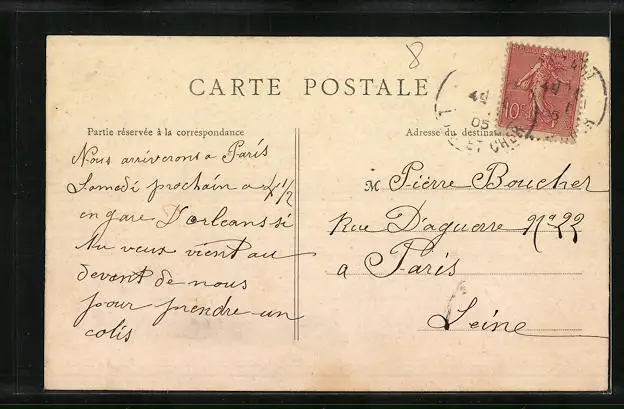 8
CARTE POSTALE
Partie réservée à la correspondance
Adresse du destinat
Nous arriverons a Paris
Samedi prochain a 4 1/2
en gare D'orleans si
tu veux vient au
devent de nous
pour prendre un
colis
M Pierre Boucher
Rue D'aguerre No 22
a Paris
Seine
10
05
ET CHER